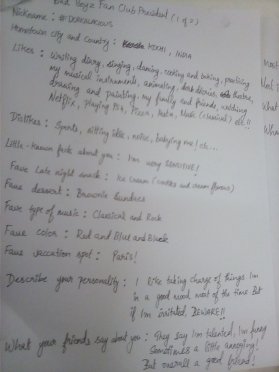 Bad Boyz Fan Club President (1 of 2)
Nickname : #
Hometown city and country : KOCHI, INDIA
Likes : Writing diary, singing, dancing, cooking and baking, practicing
my musical instruments, animating, theatre,
drawing and painting, my family and friends, watching
Netflix, playing Pizza, Pasta, Music (classical) etc!!
Dislikes : Sports, sitting idle, noise, babying me! etc...
Little-Known facts about you : I'm very SENSITIVE!
Fave Late night snack : Ice cream (cookies and cream flavour)
Fave dessert : Brownie Sundaes
Fave type of music : Classical and Rock
Fave color : Red and Blue and Black
Fave vacation spot : Paris!
Describe your personality : I like taking charge of things. I'm
in a good mood most of the time. But
if I'm irritated, BEWARE!!
What your friends say about you : They say I'm talented, I'm funny
Sometimes a little annoying!
But overall a good friend!
Most
What